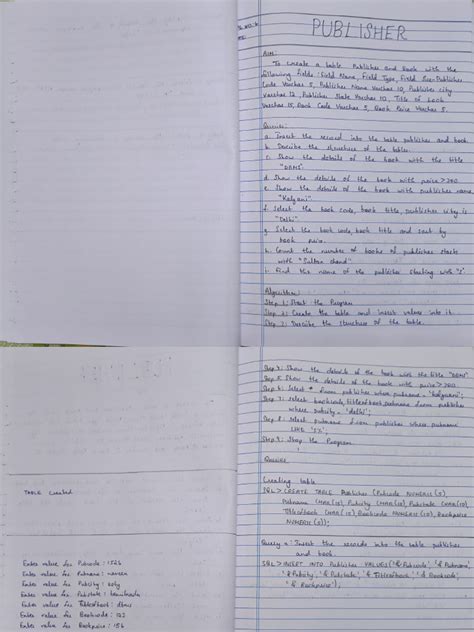 PUBLISHER
Aim:
To create a table Publisher and Book with the
following fields: Field Name, Field Type, Field Size-Publisher
Code Varchar 5, Publisher Name Varchar 10, Publisher city
Varchar 12, Publisher State Varchar 10, Title of book
Varchar 15, Book Code Varchar 5, Book Price Varchar 5.
Queries:
a. Insert the record into the table publisher and book.
b. Describe the structure of the table.
c. Show the details of the book with the title
"DBMS".
d. Show the details of the book with price > 300
e. Show the details of the book with publisher name
"Kalyani".
f. Select the book code, book title, publisher city is
"Delhi".
g. Select the book code, book title and sort by
book price.
h. Count the number of books of publisher starts
with "Sultan chand".
i. Find the name of the publisher starting with "S".
Algorithm:
Step 1: Start the Program
Step 2: Create the table and insert values into it.
Step 3: Describe the structure of the table.
Step 4: Show the details of the book with the title "DBMS"
Step 5: Show the details of the book with price > 300
Step 6: Select * from publisher where pubname = 'kalyani';
Step 7: Select bookcode, titleofbook, pubname from publisher
where pubcity = 'delhi';
Step 8: Select pubname from publisher where pubname
LIKE 'S%';
Step 9: Stop the Program.
Queries
Creating table
SQL> CREATE TABLE Publisher (Pubcode NUMERIC(5),
Pubname CHAR(10), Pubcity CHAR(10), Pubstate CHAR(10),
Titleofbook CHAR(10), Bookcode NUMERIC(5), Bookprice
NUMERIC(5));
TABLE created
Query a: Insert the records into the table publisher
and book.
SQL> INSERT INTO Publisher VALUES('&Pubcode', '&Pubname',
'&Pubcity', '&Pubstate', '&Titleofbook', '&Bookcode',
'&Bookprice');
Enter value for Pubcode:
Enter value for Pubname:
Enter value for Pubcity: ooty
Enter value for Pubstate:
Enter value for Titleofbook: dbms
Enter value for Bookcode: 123
Enter value for Bookprice: 156